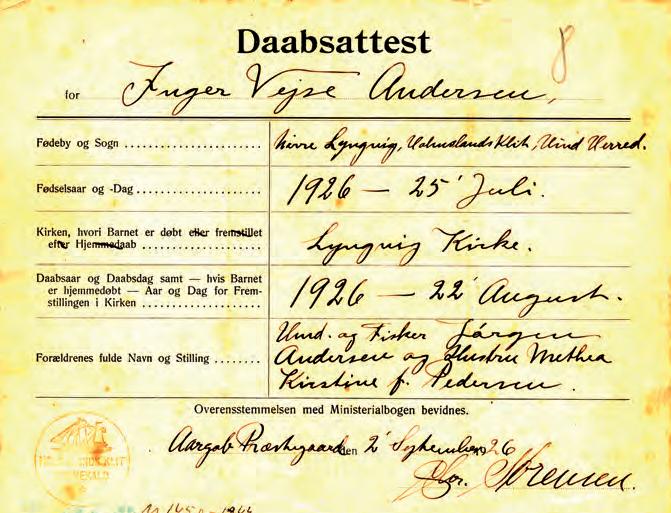 Daabsattest
8
for Inger Vejse Andersen,
Fødeby og Sogn Nørre Lyngvig, Holmslands Klit, Hind Herred.
Fødselsaar og -Dag 1926 — 25' Juli.
Kirken, hvori Barnet er døbt eller fremstillet
efter Hjemmedaab Lyngvig Kirke.
Daabsaar og Daabsdag samt — hvis Barnet
er hjemmedøbt — Aar og Dag for Frem-
stillingen i Kirken 1926 — 22' August.
Forældrenes fulde Navn og Stilling
Hmd. og Fisker Jørgen
Andersen og Hustru Methea
Kirstine f. Pedersen.
Overensstemmelsen med Ministerialbogen bevidnes.
Aargab Præstegaard den 2' September 1926
Chr. Sørensen.